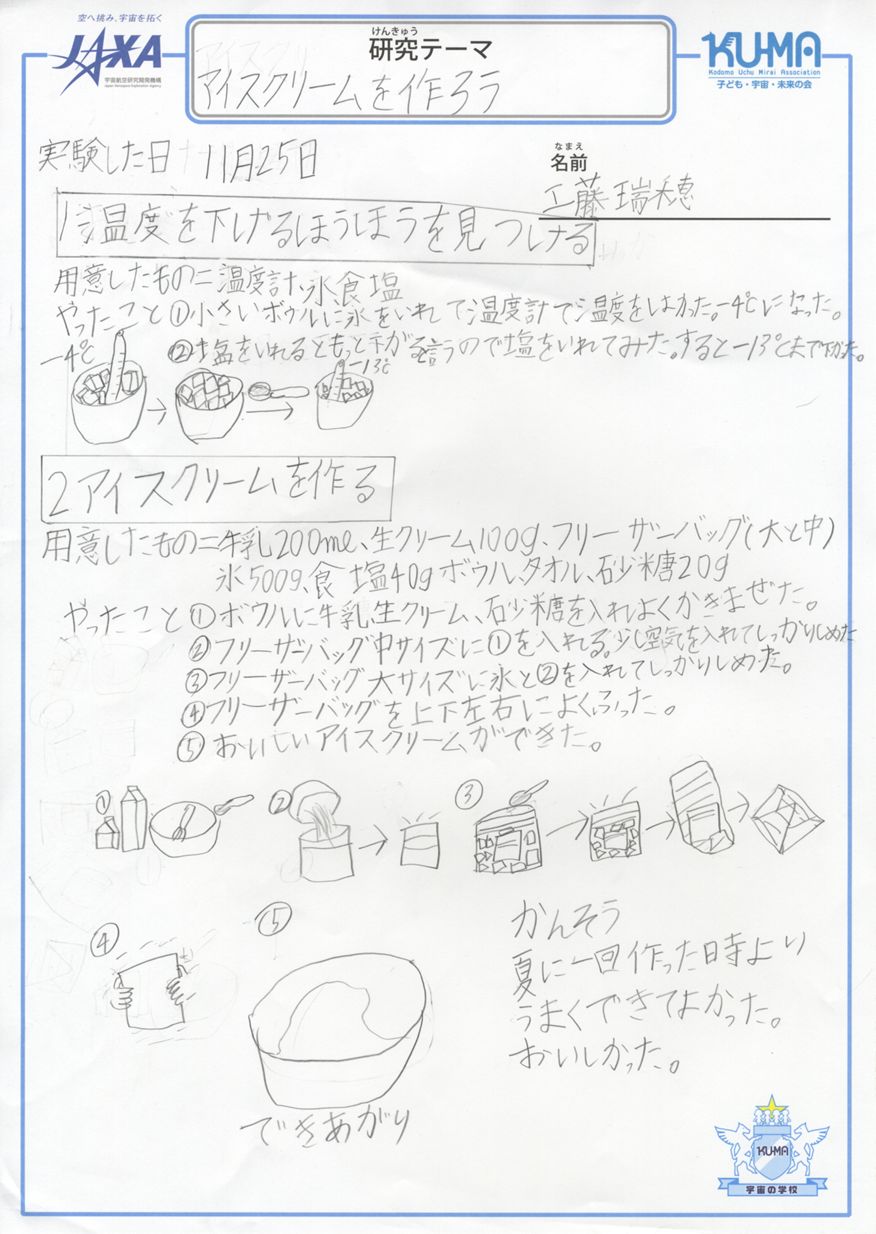 空へ挑み、宇宙を拓く
JAXA
宇宙航空研究開発機構
Japan Aerospace Exploration Agency
けんきゅう
研究テーマ
アイスクリームを作ろう
KU-MA
Kodomo Uchu Mirai Association
子ども・宇宙・未来の会
実験した日 11月25日
なまえ
名前
工藤瑞穂
1 温度を下げるほうほうを見つける
用意したもの=温度計、氷、食塩
やったこと①小さいボウルに氷をいれて温度計で温度をはかった。-4℃になった。
②塩をいれるともっと下がると言うので塩をいれてみた。すると-13℃まで下がった。
-4℃
-13℃
2アイスクリームを作る
用意したもの=牛乳200mℓ、生クリーム100g、フリーザーバッグ(大と中)
氷500g、食塩40gボウル、タオル、砂糖20g
やったこと①ボウルに牛乳、生クリーム、砂糖を入れよくかきまぜた。
②フリーザーバッグ中サイズに①を入れる。少し空気を入れてしっかりしめた
③フリーザーバッグ大サイズに氷と②を入れてしっかりしめた。
④フリーザーバッグを上下左右によくふった。
⑤おいしいアイスクリームができた。
①
②
③
④
⑤
できあがり
かんそう
夏に一回作った時より
うまくできてよかった。
おいしかった。
KU-MA
宇宙の学校